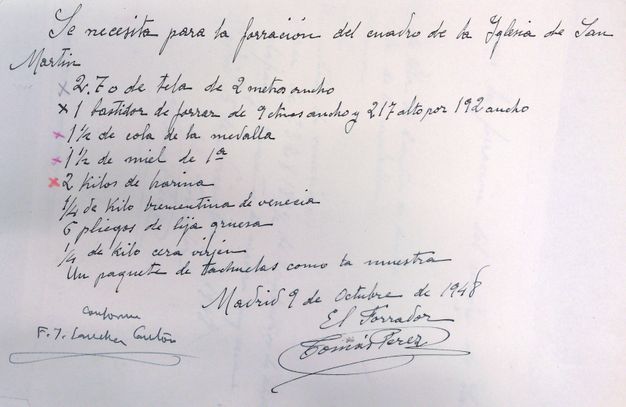 Se necesita para la forración del cuadro de la Iglesia de San
Martin
x 2.70 de tela de 2 metros ancho
x 1 bastidor de forrar de 9 ctms ancho y 217 alto por 192 ancho
x 1 1/2 de cola de la medalla
x 1 1/2 de miel de 1ª
x 2 Kilos de harina
1/4 de Kilo trementina de venecia
6 pliegos de lija gruesa
1/4 de Kilo cera virjen
Un paquete de tachuelas como la muestra
Madrid 9 de Octubre de 1948
El Forrador
Tomás Perez
conforme
F. J. Sanchez Cantón